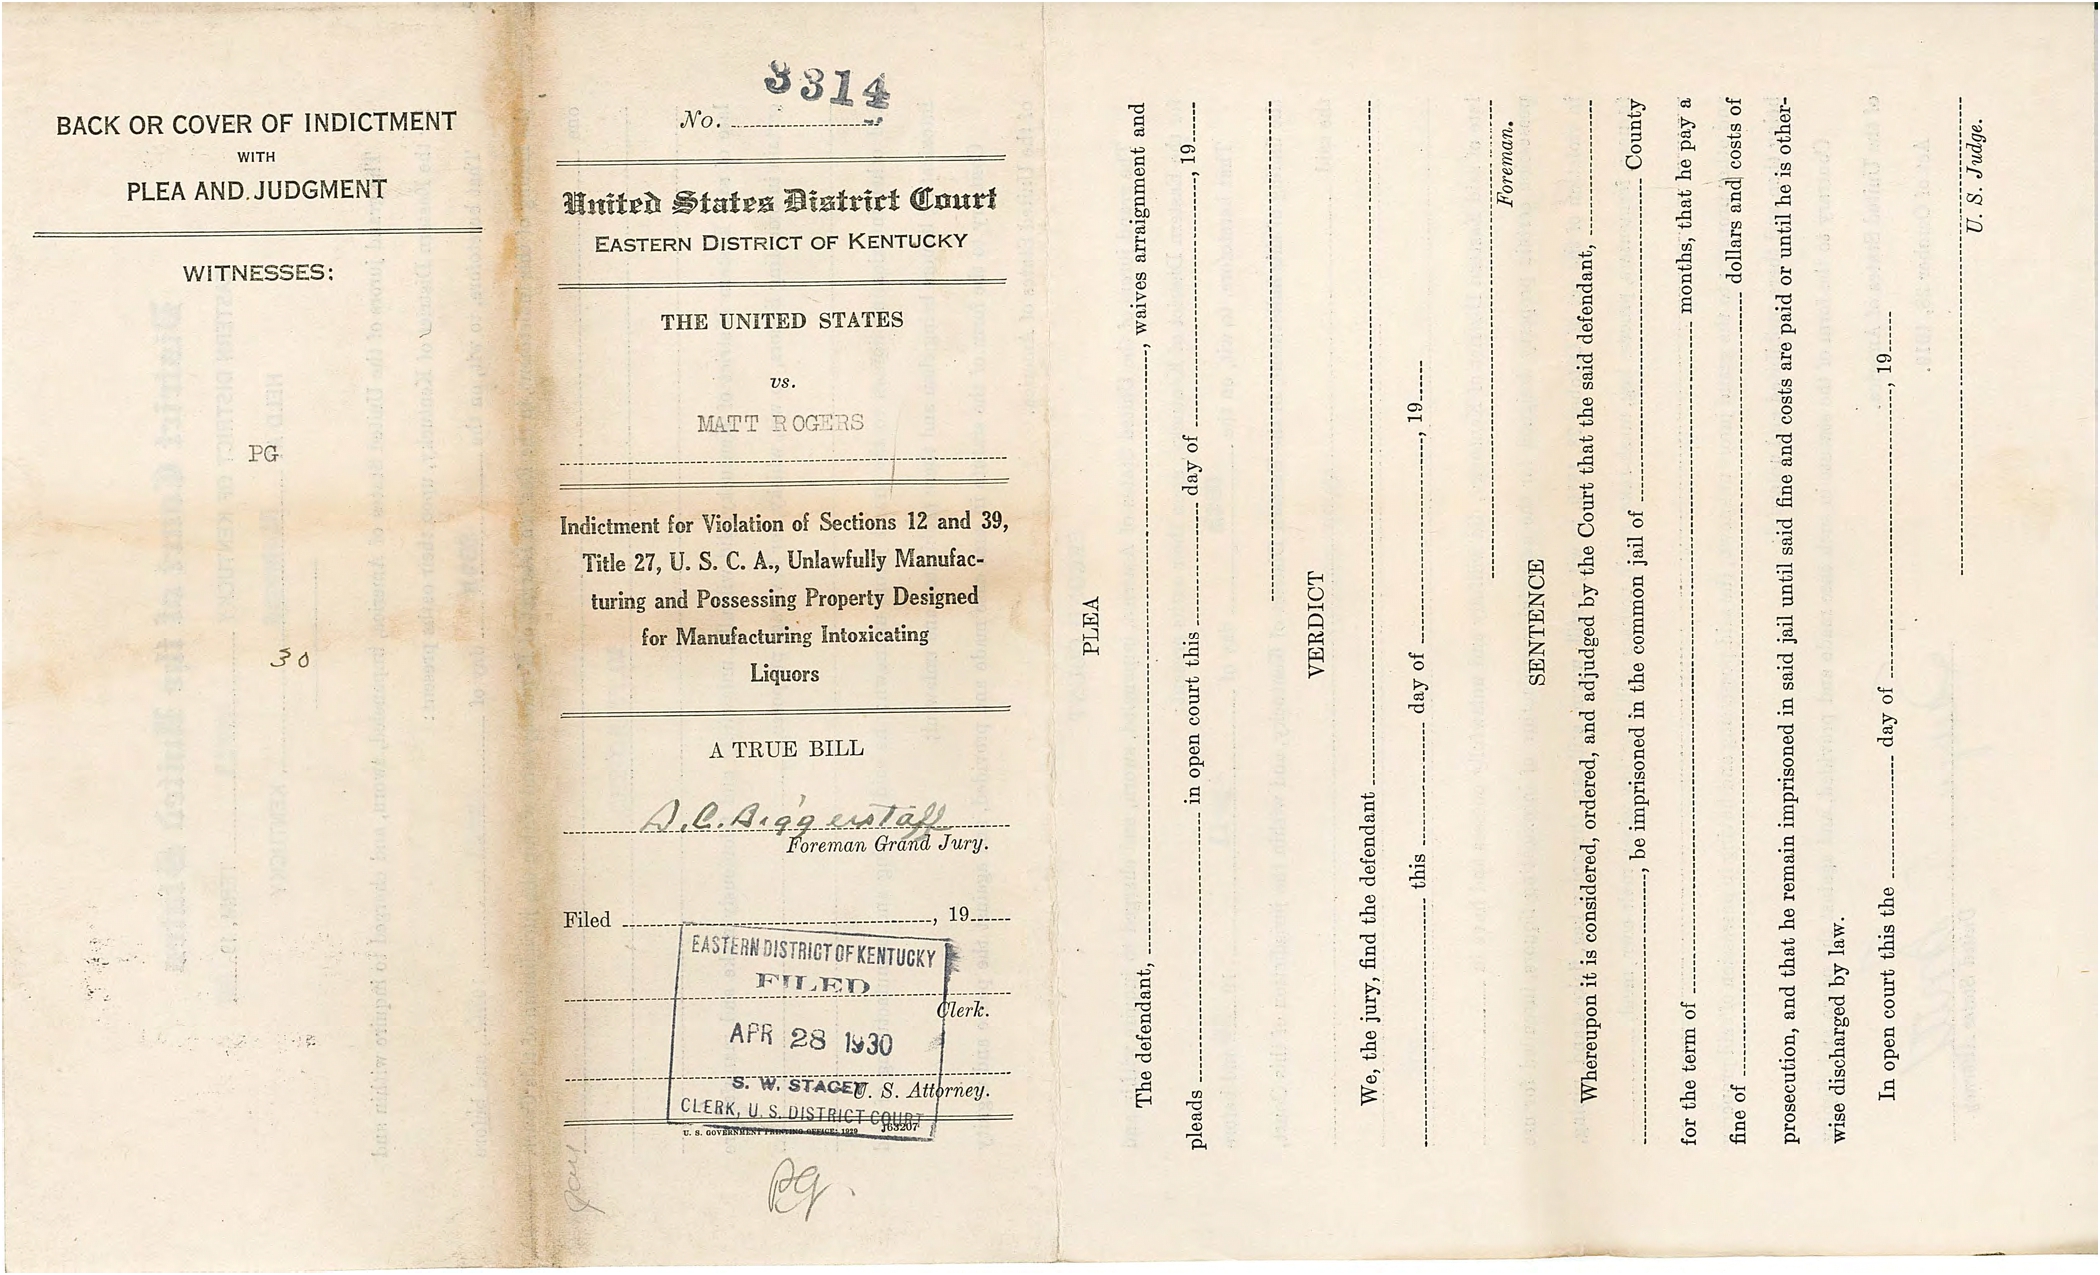 BACK OR COVER OF INDICTMENT
WITH
PLEA AND JUDGMENT
WITNESSES:
PG
30
3314
No.
United States District Court
EASTERN DISTRICT OF KENTUCKY
THE UNITED STATES
vs.
MATT ROGERS
Indictment for Violation of Sections 12 and 39,
Title 27, U. S. C. A., Unlawfully Manufac-
turing and Possessing Property Designed
for Manufacturing Intoxicating
Liquors
A TRUE BILL
D.C. Biggerstaff
Foreman Grand Jury.
Filed , 19
EASTERN DISTRICT OF KENTUCKY
FILED
Clerk.
APR 28 1930
S. W. STACEY
U. S. Attorney.
CLERK, U. S. DISTRICT COURT
U. S. GOVERNMENT PRINTING OFFICE: 1929 J63207
PG
PLEA
The defendant, , waives arraignment and
pleads in open court this day of , 19
VERDICT
We, the jury, find the defendant
this day of , 19
Foreman.
SENTENCE
Whereupon it is considered, ordered, and adjudged by the Court that the said defendant,
, be imprisoned in the common jail of County
for the term of months, that he pay a
fine of dollars and costs of
prosecution, and that he remain imprisoned in said jail until said fine and costs are paid or until he is other-
wise discharged by law.
In open court this the day of , 19
U. S. Judge.